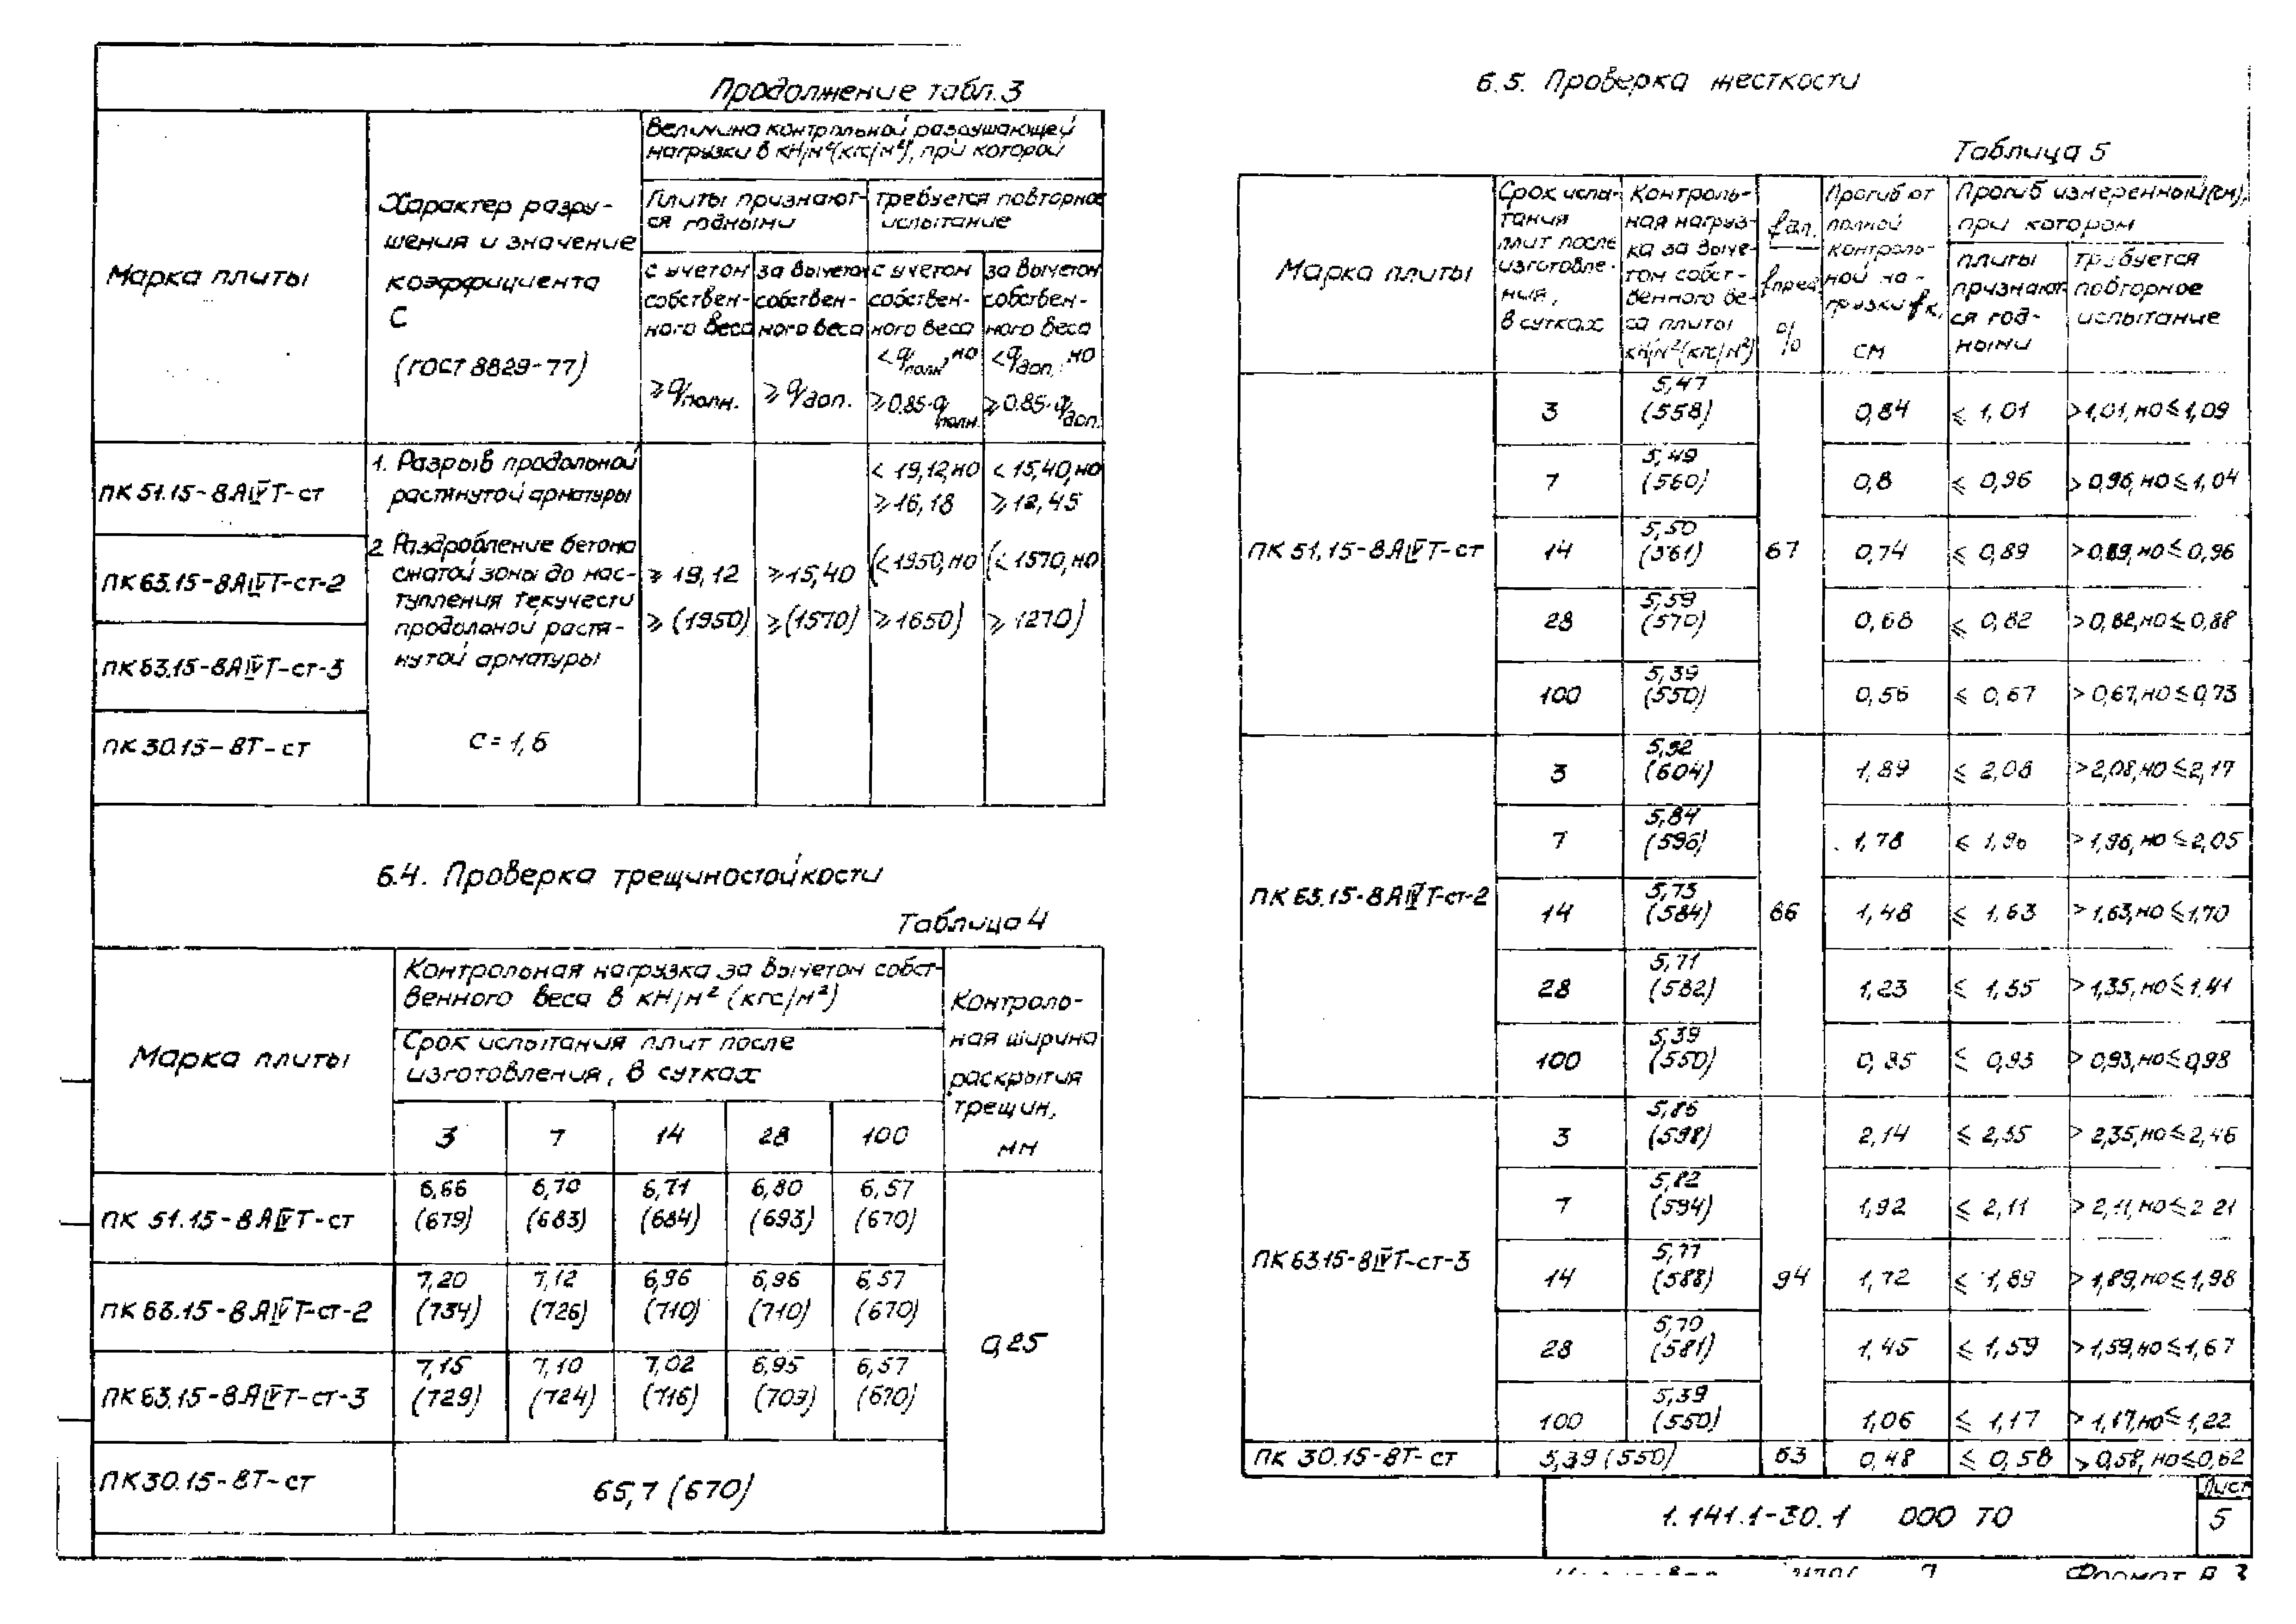 Продолжение табл. 3
Марка плиты
Характер разру-
шения и значение
коэффициента
С
(ГОСТ 8829-77)
Величина контрольной разрушающей
нагрузки в кН/м²(кгс/м²), при которой
Плиты признают-
ся годными
требуется повторное
испытание
с учетом
собствен-
ного веса
≥qполн.
за вычетом
собствен-
ного веса
≥qдоп.
с учетом
собствен-
ного веса
<qполн, но
≥0.85·qполн.
за вычетом
собствен-
ного веса
<qдоп., но
≥0.85·qдоп.
ПК 51.15-8АIVТ-ст
ПК 63.15-8АIVТ-ст-2
ПК 63.15-8АIVТ-ст-3
ПК 30.15-8Т-ст
1. Разрыв продольной
растянутой арматуры
2. Раздробление бетона
сжатой зоны до нас-
тупления текучести
продольной растя-
нутой арматуры
С = 1,6
≥ 19,12
≥ (1950)
≥15,40
≥(1570)
< 19,12, но
≥16,18
(<1950, но
≥1650)
< 15,40, но
≥ 12,45
(< 1570, но
≥ 1270)
6.4. Проверка трещиностойкости
Таблица 4
Марка плиты
Контрольная нагрузка за вычетом собст-
венного веса в кН/м² (кгс/м²)
Срок испытания плит после
изготовления, в сутках
3 7 14 28 100
Контроль-
ная ширина
раскрытия
трещин,
мм
ПК 51.15-8АIVТ-ст
6,66 6,70 6,71 6,80 6,57
(679) (683) (684) (693) (670)
ПК 63.15-8АIVТ-ст-2
7,20 7,12 6,96 6,96 6,57
(734) (726) (710) (710) (670)
ПК 63.15-8АIVТ-ст-3
7,15 7,10 7,02 6,95 6,57
(729) (724) (716) (709) (670)
0,25
ПК 30.15-8Т-ст
65,7 (670)
6.5. Проверка жесткости
Таблица 5
Марка плиты
Срок испы-
тания
плит после
изготовле-
ния,
в сутках
Контроль-
ная нагруз-
ка за выче-
том собст-
венного ве-
са плиты
кН/м²(кгс/м²)
fдл.
fпред
%
Прогиб от
полной
контроль-
ной на-
грузки fк,
см
Прогиб измеренный (см),
при котором
плиты
признают
ся год-
ными
требуется
повторное
испытание
ПК 51.15-8АIVТ-ст
67
3 5,47 (558) 0,84 ≤ 1,01 >1,01, но ≤ 1,09
7 5,49 (560) 0,8 ≤ 0,96 > 0,96, но ≤ 1,04
14 5,50 (561) 0,74 ≤ 0,89 > 0,89, но ≤ 0,96
28 5,59 (570) 0,68 ≤ 0,82 > 0,82, но ≤ 0,88
100 5,39 (550) 0,56 ≤ 0,67 > 0,67, но ≤ 0,73
ПК 63.15-8АIVТ-ст-2
66
3 5,92 (604) 1,89 ≤ 2,08 >2,08, но ≤ 2,17
7 5,84 (596) 1,78 ≤ 1,96 > 1,96, но ≤ 2,05
14 5,73 (584) 1,48 ≤ 1,63 > 1,63, но ≤ 1,70
28 5,71 (582) 1,23 ≤ 1,35 > 1,35, но ≤ 1,41
100 5,39 (550) 0,85 ≤ 0,93 > 0,93, но ≤ 0,98
ПК 63.15-8IVТ-ст-3
94
3 5,86 (598) 2,14 ≤ 2,35 > 2,35, но ≤ 2,46
7 5,82 (594) 1,92 ≤ 2,11 > 2,11, но ≤ 2 21
14 5,77 (588) 1,72 ≤ 1,89 > 1,89, но ≤ 1,98
28 5,70 (581) 1,45 ≤ 1,59 > 1,59, но ≤ 1,67
100 5,39 (550) 1,06 ≤ 1,17 > 1,17, но ≤ 1,22
ПК 30.15-8Т-ст 5,39 (550) 63 0,48 ≤ 0,58 > 0,58, но ≤ 0,62
1.141.1-30.1 000 ТО
Лист
5
Формат А3